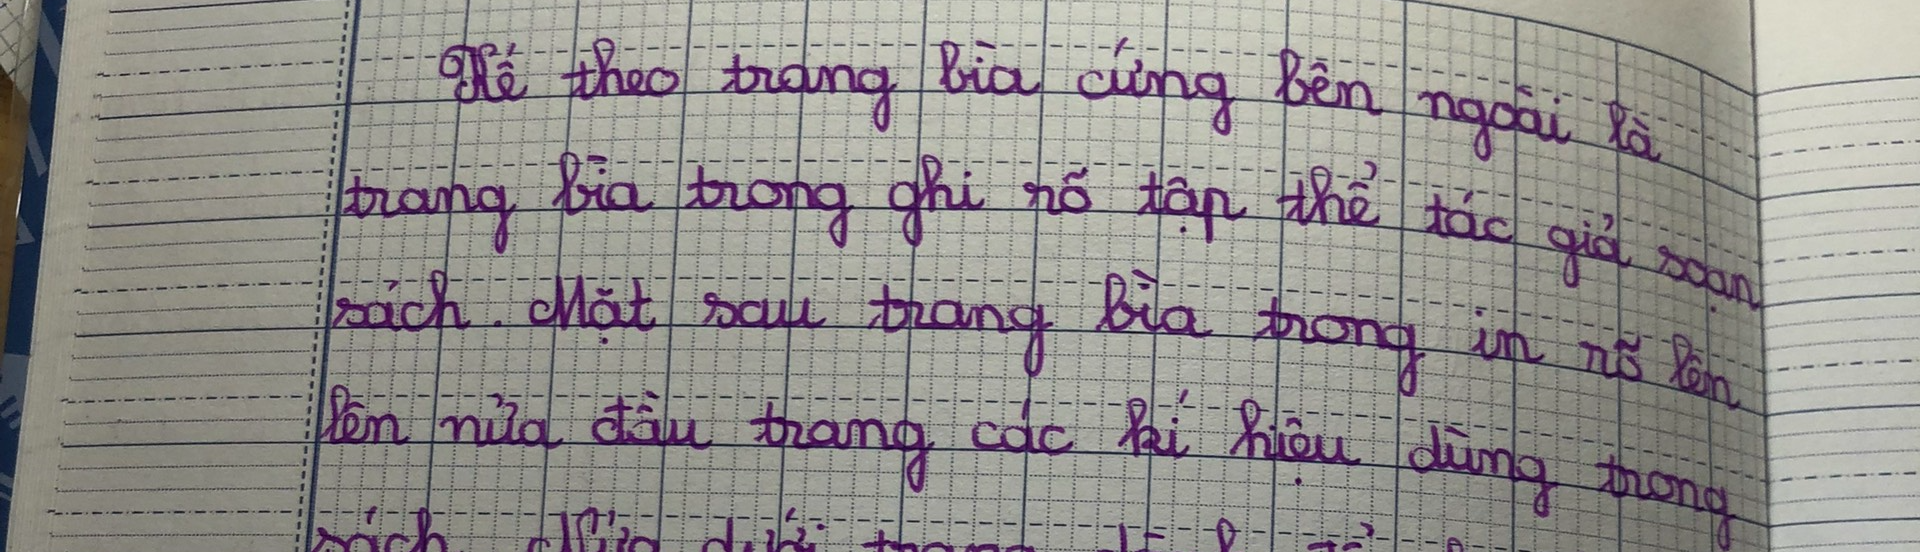 Kế theo trang bìa cứng bên ngoài là
trang bìa trong ghi rõ tập thể tác giả soạn
sách. Mặt sau trang bìa trong in rõ lên
lên nửa đầu trang các kí hiệu dùng trong
sách. Nửa dưới trang